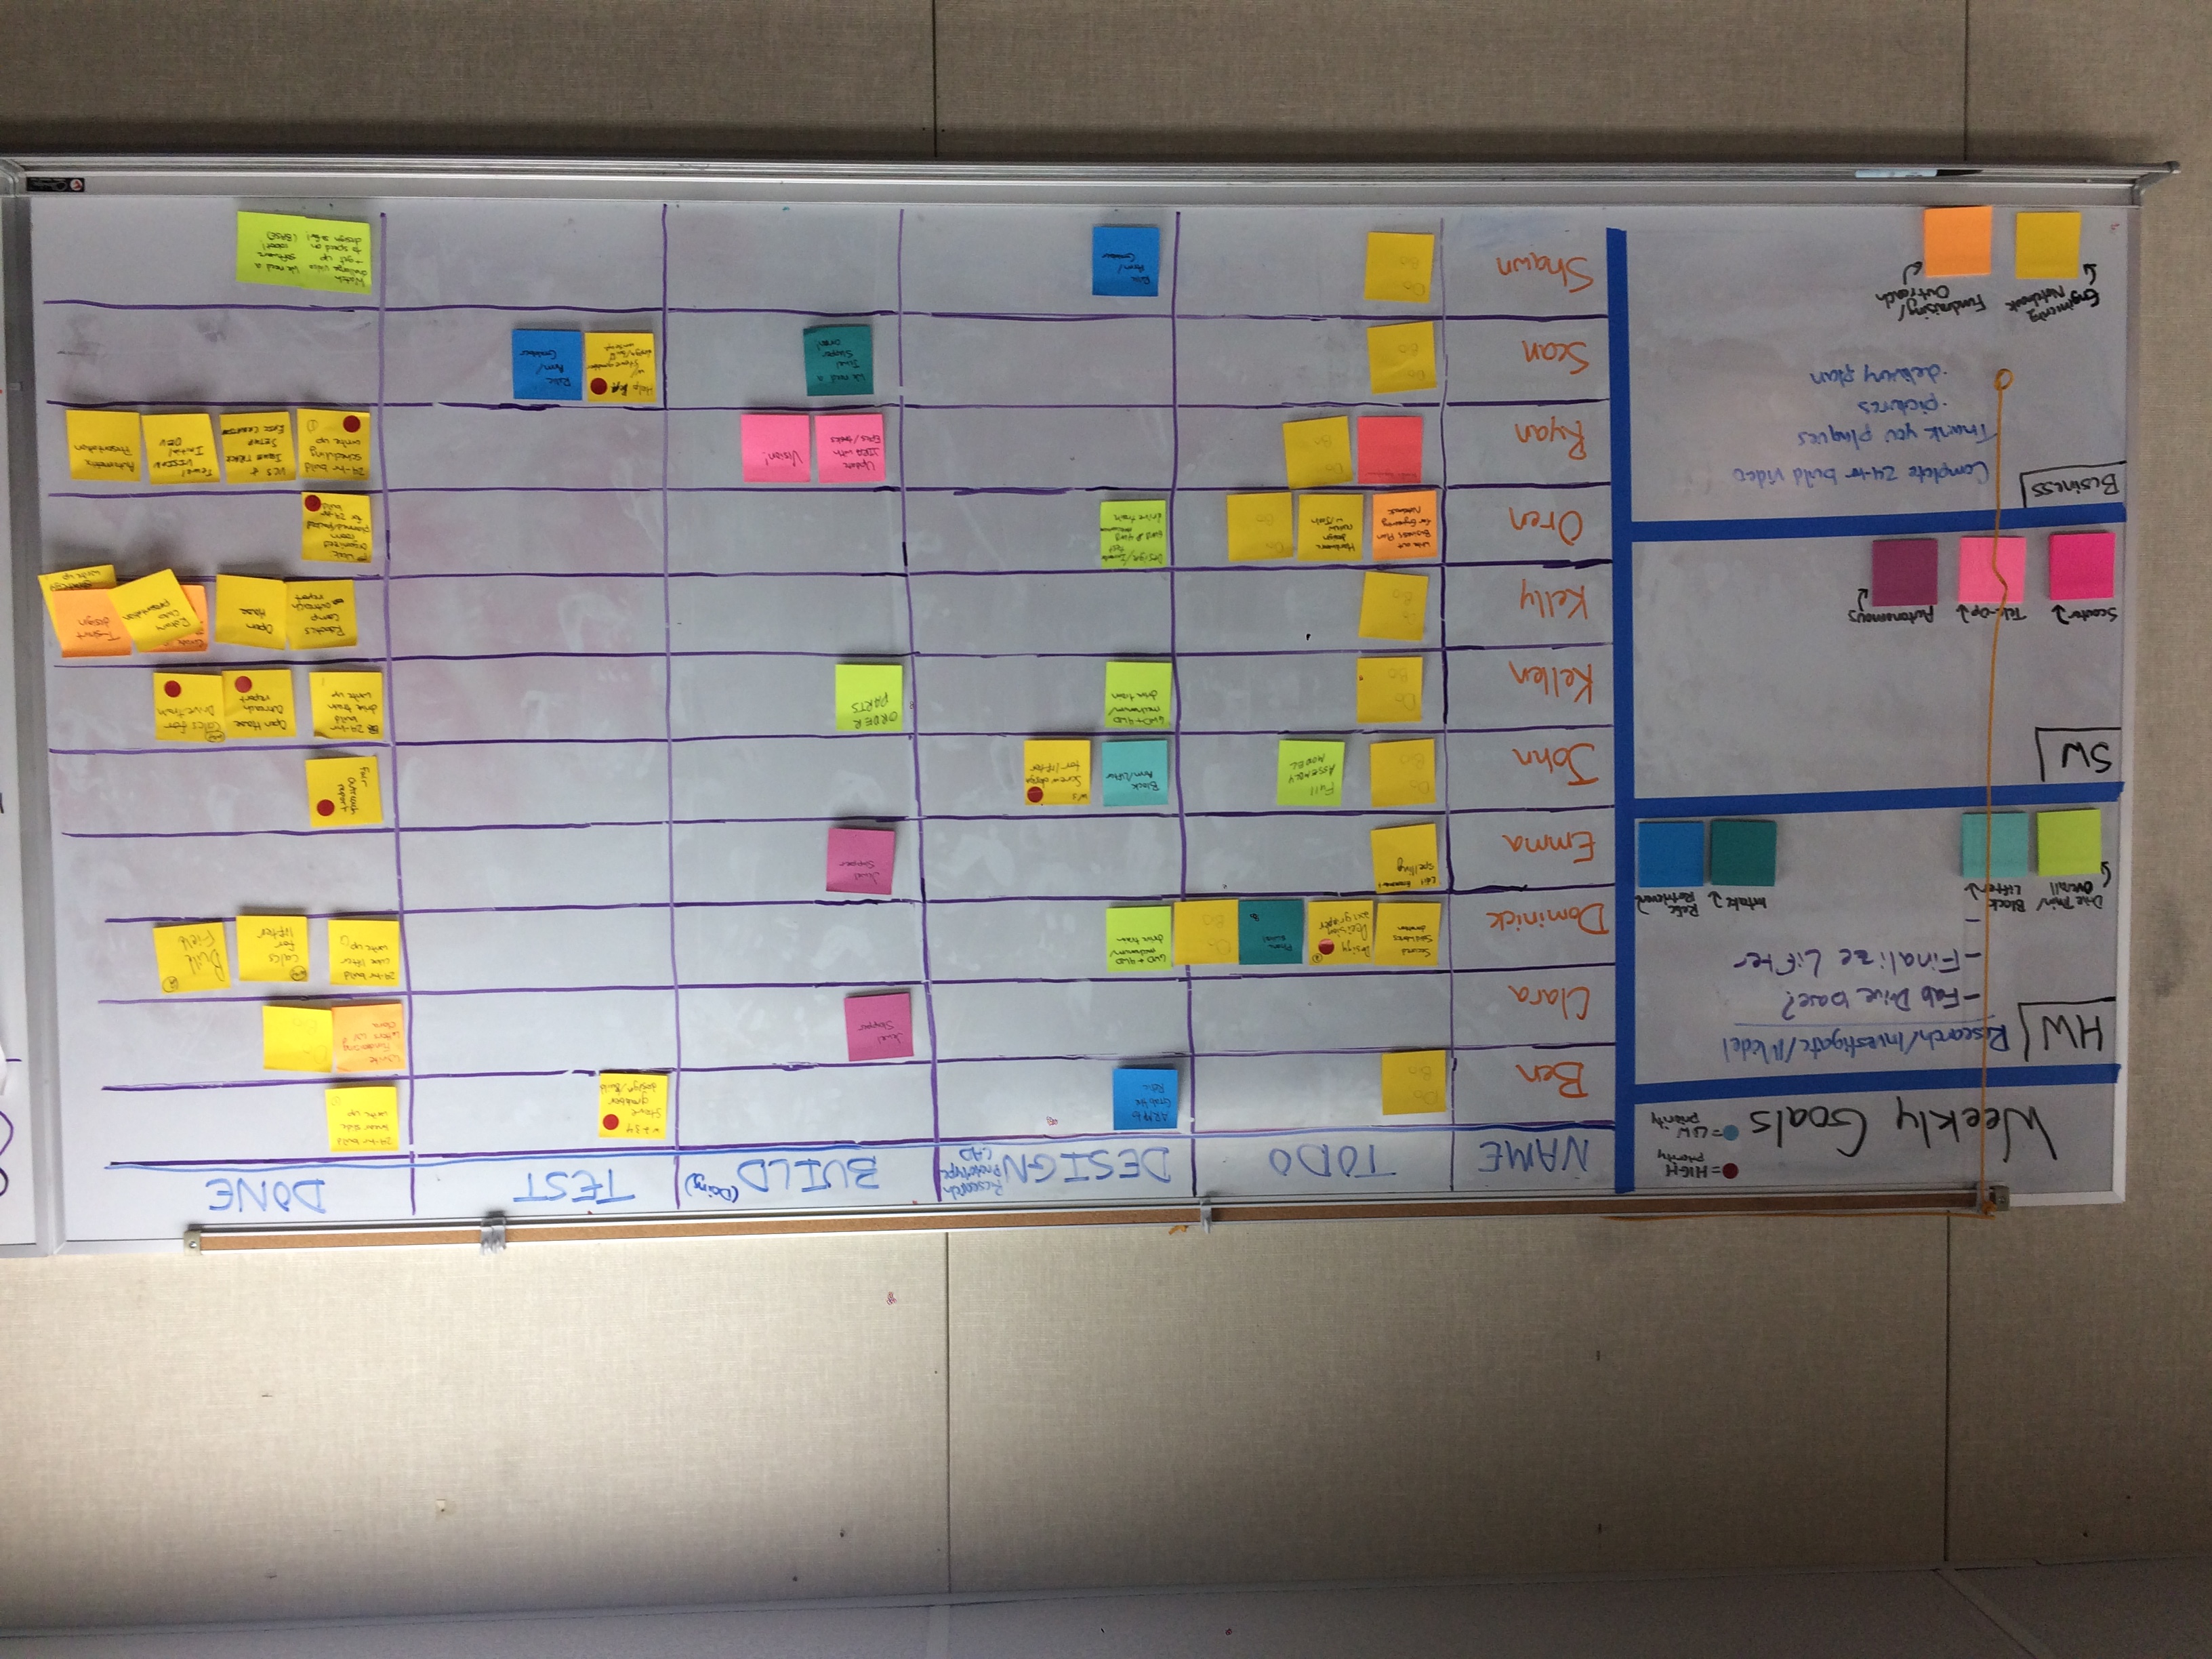 Weekly Goals
= HIGH
priority
= LOW
priority
HW
Research/Investigate/Model
- Fab Drive base?
- Finalize Lifter
-
Drive Train/
Overall
Block
Lifter
Intake
Relic
Retrieval
SW
Scouter
Tele-Op
Autonomous
Business
Complete 24-hr build video
Thank you plaques
· pictures
· delivery plan
Engineering
Notebook
Fundraising/
Outreach
NAME
TODO
DESIGN
Research
Prototype
CAD
BUILD
(Doing)
TEST
DONE
Ben
Do
Bio
ARM to
Grab the
Relic
w 2 3 4
Steve
grabber
design/Build
24-hr build
linear slide
write up
Clara
Jewel
Slapper
Write
Fundraising
letters w/
Clara
Do
Bio
Dominick
Secured
SolidWorks
donation
Design
Decision
2x1 gripper
Phone
Do
Bio
6WD + 4WD
mechanum/
drive train
24-hr build
cube lifter
write up
Calcs
for
lifter
Build
Field
Emma
Edit
spelling
Jewel
Slapper
John
Do
Bio
Full
ASSEMBLY
MODEL
Block
Arm/Lifter
W3
Screw design
for lifter
Fair
Outreach
report
Kellen
Do
Bio
6WD + 4WD
mechanum/
drive train
ORDER
PARTS
24-hr
build
drive train
write up
Open House
Outreach
report
Calcs for
Drive train
Kelly
Do
Bio
Robotics
Camp
outreach
report
Open
House
Rotary
Club
presentation
T-shirt
design
write up
Oren
Write out
Business Plan
for Engineering
Notebook
Hardware
design
w/ Josh
Do
Bio
Design/
test
drive train
Week:
organized
room
planned/packed
for 24-hr
build
Ryan
Do
Bio
Update
JIRA with
Epics/tasks
Vision!
24-hr build
scheduling
write up
VCS &
ISSUE TRACK
SETUP
EPIC CREATION
Jewel
VISION
Initial
DEV
Automatrix
Presentation
Sean
Do
Bio
We need a
Jewel
Slapper
arm!
Help
w/
Steve grabber
design/build
Relic
Arm/
Grabber
Shawn
Do
Bio
Relic
Arm/
Grabber
Watch
challenge video
→ get up
to speed on
design so far!
We need a
software
robot!
(BASE)